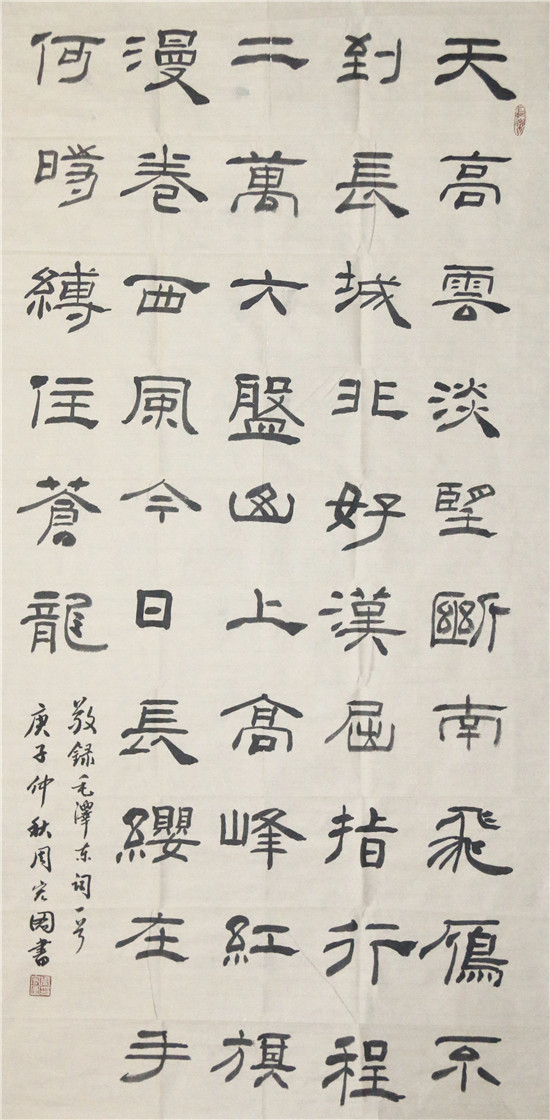 天高雲淡望斷南飛鴈不
到長城非好漢屈指行程
二萬六盤山上高峰紅旗
漫卷西風今日長纓在手
何時縛住蒼龍
敬録毛澤東詞一首
庚子仲秋周書